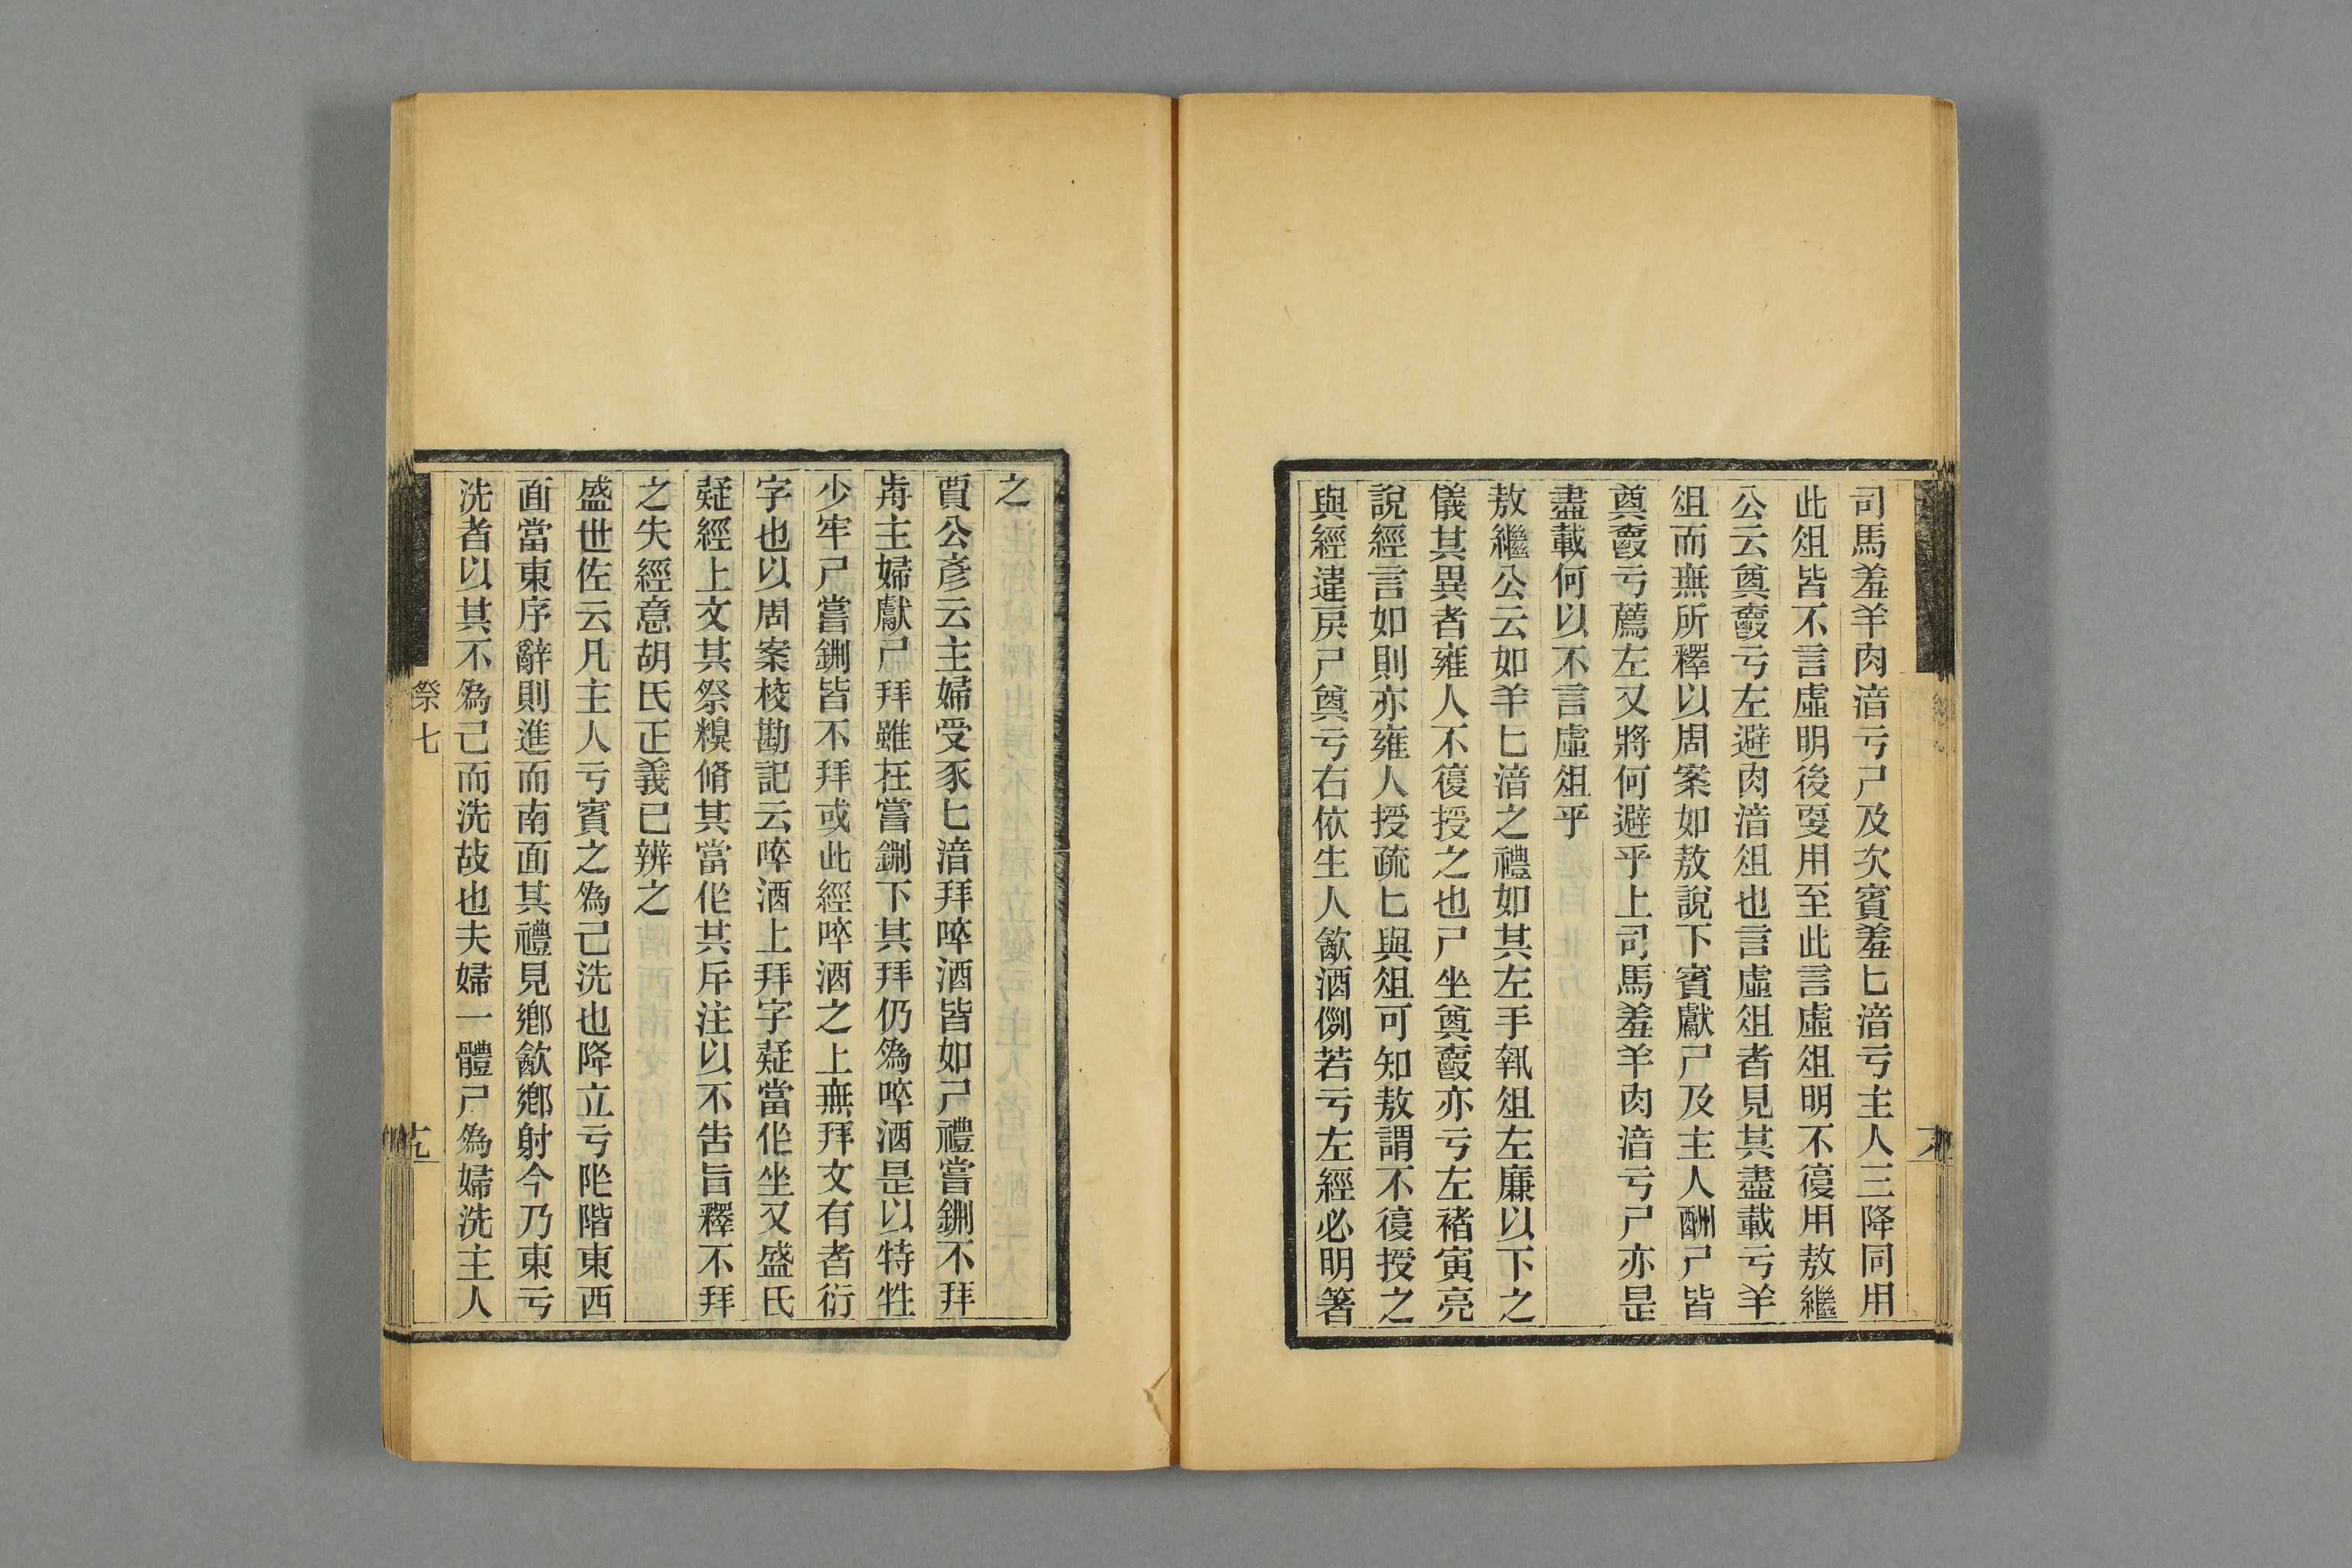 司馬羞羊肉湆亏尸及次賓羞匕湆亏主人三降同用
此俎皆不言虛明後㪅用至此言虛俎明不復用敖繼
公云奠爵亏左避肉湆俎也言虛俎者見其盡載亏羊
俎而無所釋以周案如敖說下賓獻尸及主人酬尸皆
奠爵亏薦左又將何避乎上司馬羞羊肉湆亏尸亦是
盡載何以不言虛俎乎
敖繼公云如羊匕湆之禮如其左手執俎左廉以下之
儀其異者雍人不復授之也尸坐奠爵亦亏左褚寅亮
說經言如則亦雍人授疏匕與俎可知敖謂不復授之
與經違戾尸奠亏右依生人飲酒例若亏左經必明箸
之
賈公彥云主婦受豕匕湆拜啐酒皆如尸禮嘗鉶不拜
歬主婦獻尸拜雖在嘗鉶下其拜仍爲啐酒是以特牲
少牢尸嘗鉶皆不拜或此經啐酒之上無拜文有者衍
字也以周案校勘記云啐酒上拜字疑當作坐又盛氏
疑經上文其祭糗脩其當作共斥注以不告旨釋不拜
之失經意胡氏正義已辨之
盛世佐云凡主人亏賓之爲己洗也降立亏阼階東西
面當東序辭則進而南面其禮見鄉飲鄉射今乃東亏
洗者以其不爲己而洗故也夫婦一體尸爲婦洗主人
祭七
十九